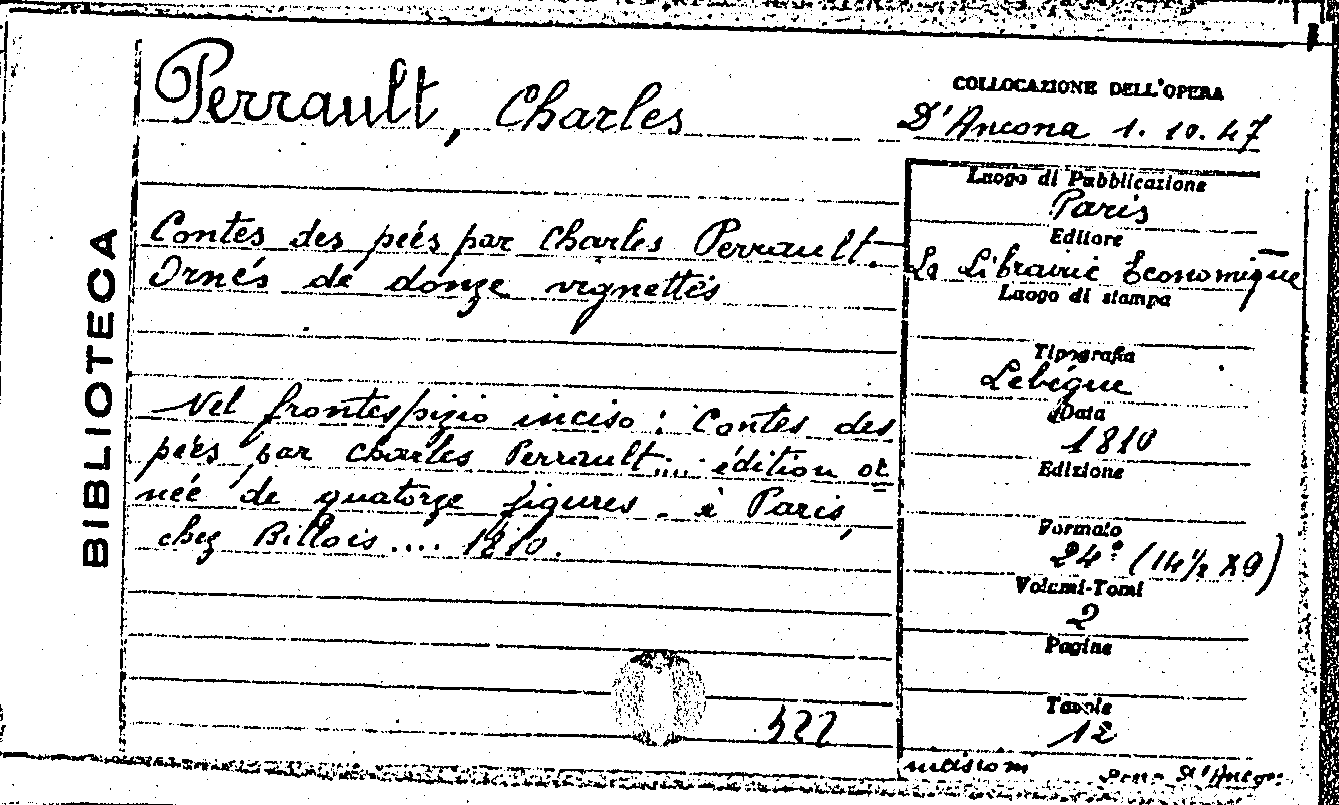 BIBLIOTECA
Perrault, Charles
Contes des peés par Charles Perrault.
Ornés de donze vignettes
Nel frontespizio inciso: Contes des
peés par Charles Perrault.... édition or
née de quatorze figures - à Paris,
chez Billois .... 1810.
522
COLLOCAZIONE DELL'OPERA
D'Ancona 1. 10. 47
Luogo di Pubblicazione
Paris
Editore
La Librairie Economique
Luogo di stampa
Tipografia
Lebégue
Data
1810
Edizione
Formato
24° (14½ X 9)
Volumi-Tomi
2
Pagine
Tavole
12
D'Ancona